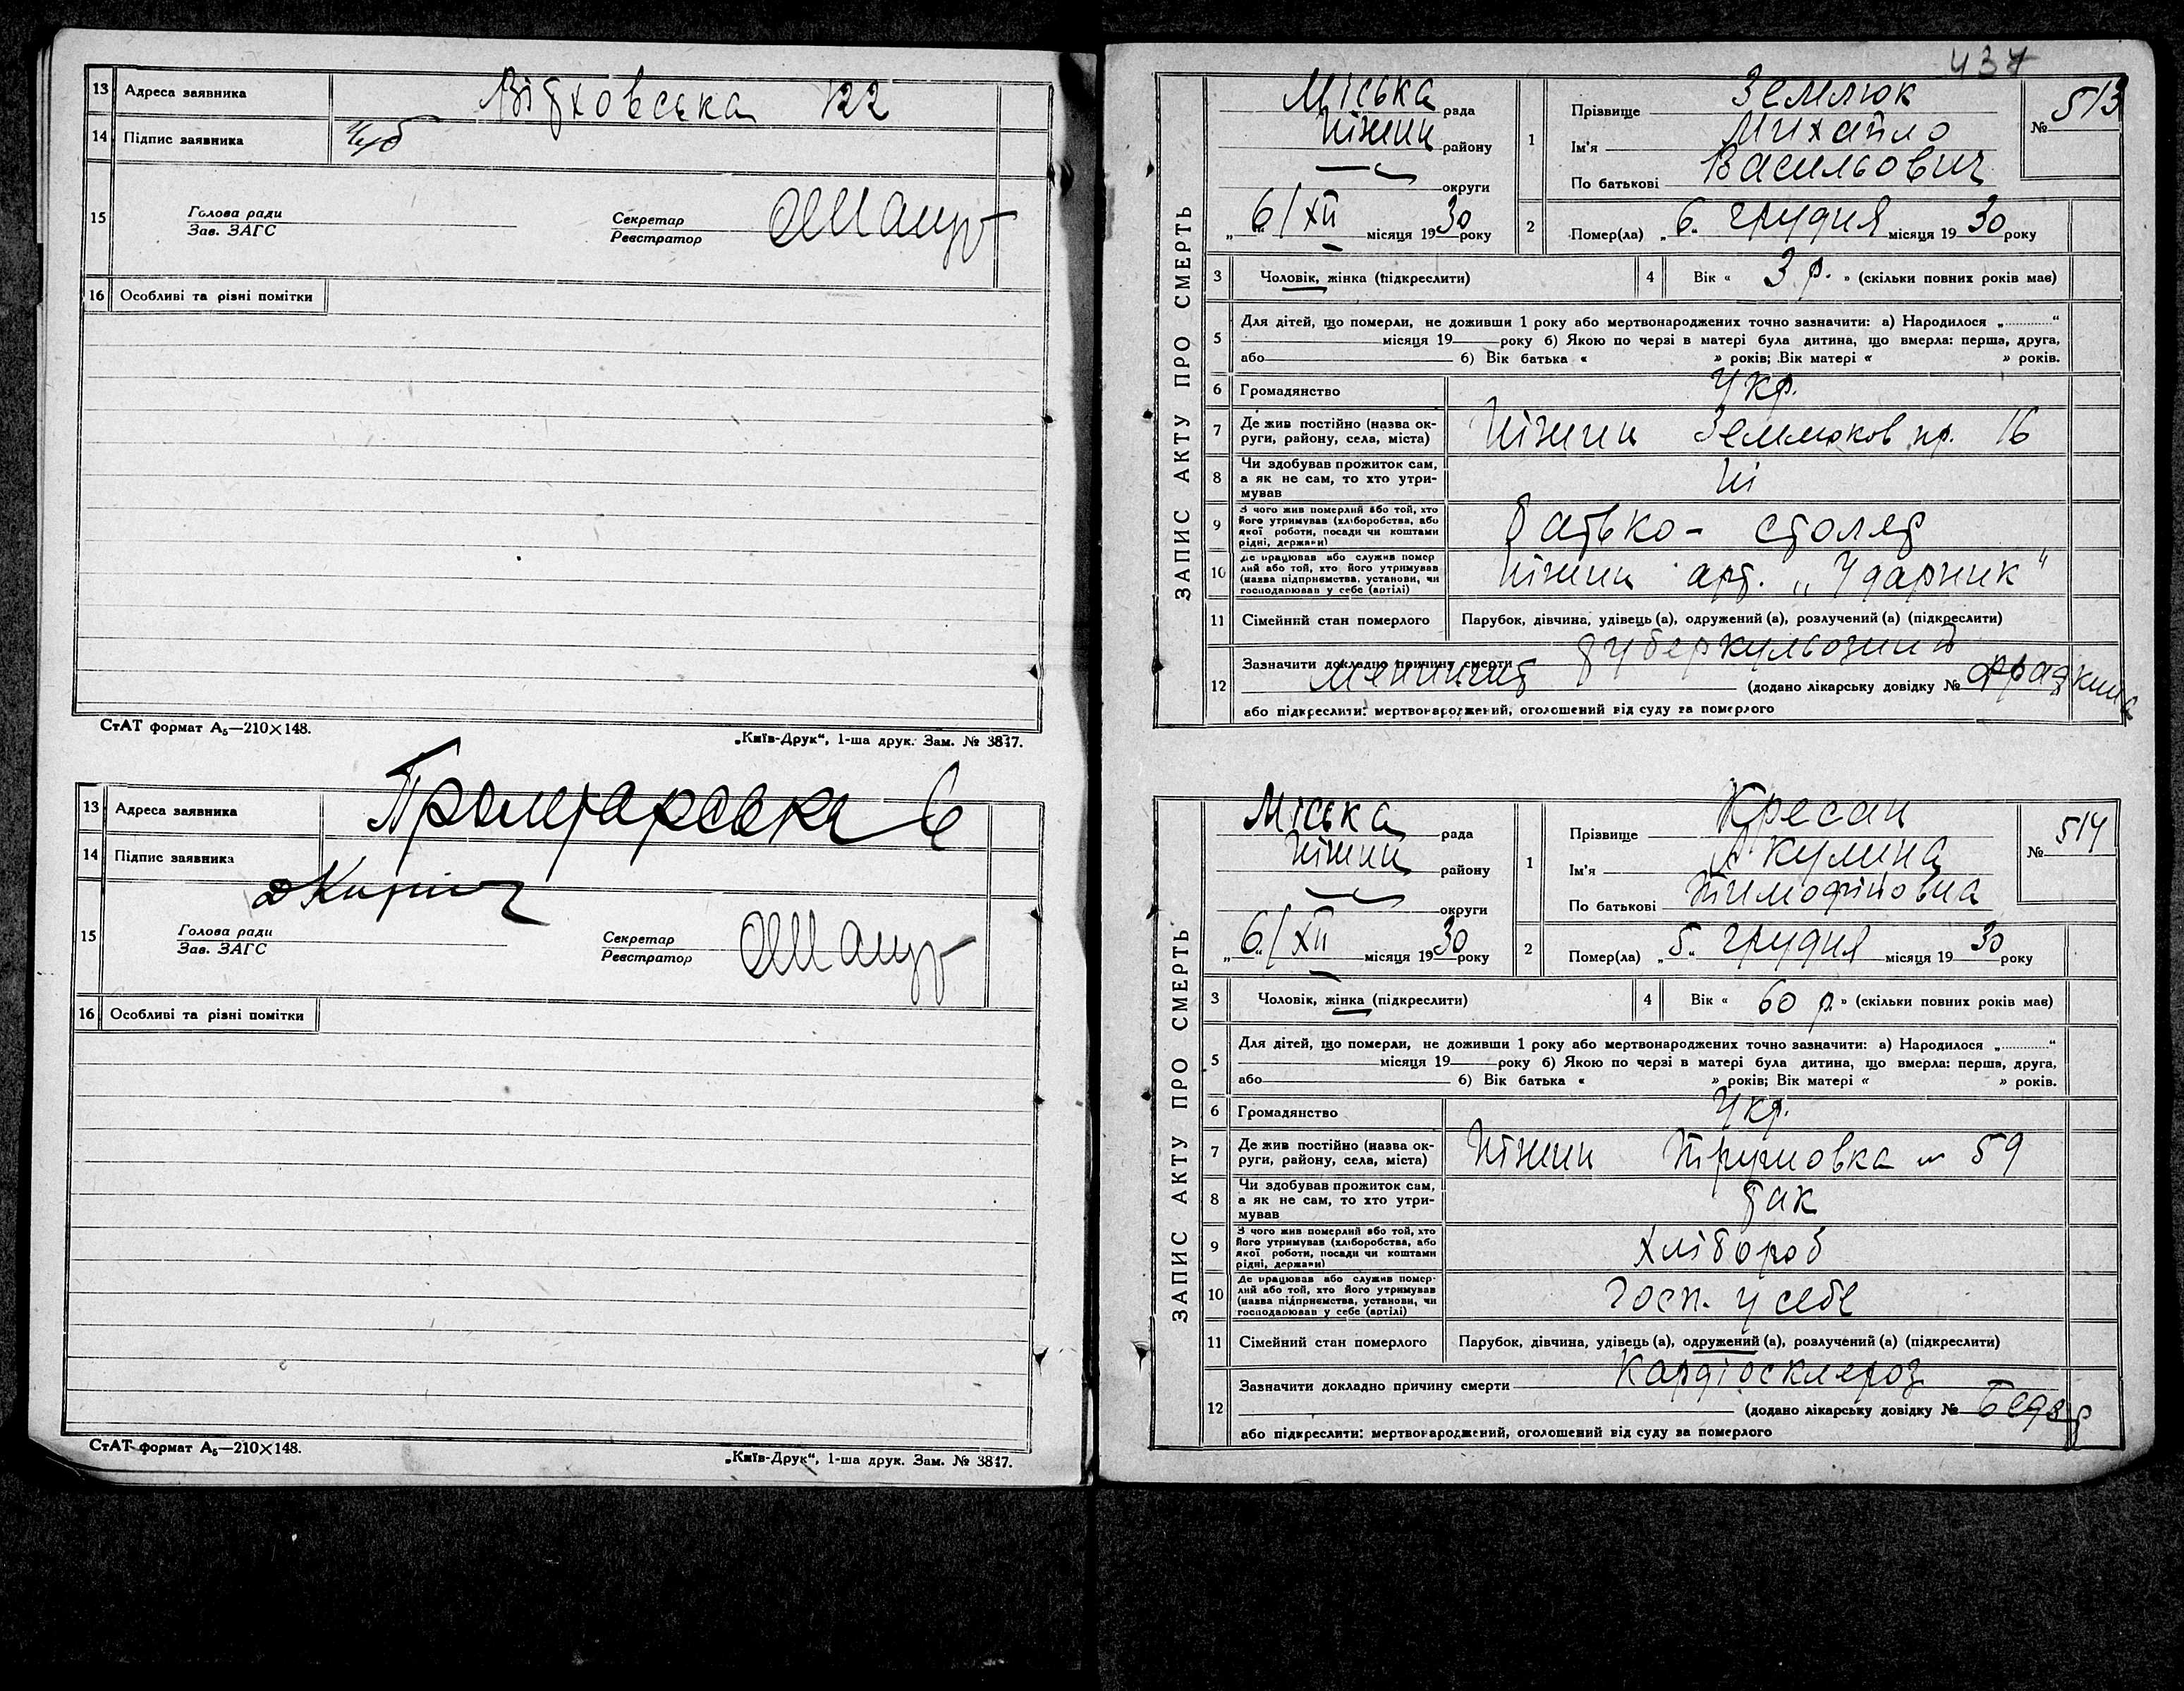 13 Адреса заявника Вітховська 122
14 Підпис заявника Чуб
15 Голова ради
Зав. ЗАГС
Секретар
Реєстратор
16 Особливі та різні помітки
СтАТ формат А₅—210×148.
„Київ-Друк“, 1-ша друк. Зам. № 3847.
13 Адреса заявника 6
14 Підпис заявника
15 Голова ради
Зав. ЗАГС
Секретар
Реєстратор
16 Особливі та різні помітки
СтАТ формат А₅—210×148.
„Київ-Друк“, 1-ша друк. Зам. № 3847.
437
ЗАПИС АКТУ ПРО СМЕРТЬ
Міська рада
Ніжин району
округи
„6“/XII місяця 1930 року
1 Прізвище Землюк
Ім'я Михайло
По батькові Васильович
№ 513
2 Помер(ла) „6“ грудня місяця 1930 року
3 Чоловік, жінка (підкреслити)
4 Вік « 3 р. » (скільки повних років має)
5 Для дітей, що померли, не доживши 1 року або мертвонароджених точно зазначити: а) Народилося „ “
місяця 19 року б) Якою по черзі в матері була дитина, що вмерла: перша, друга,
або б) Вік батька « » років; Вік матері « » років.
6 Громадянство Укр.
7 Де жив постійно (назва ок-
руги, району, села, міста) Ніжин Землюков пр. 16
8 Чи здобував прожиток сам,
а як не сам, то хто утри-
мував Ні
9 З чого жив померлий або той, хто
його утримував (хліборобства, або
якої роботи, посади чи коштами
рідні, держави) батько - столяр
10 Де працював або служив помер
лий або той, хто його утримував
(назва підприємства, установи, чи
господарював у себе (артілі) Ніжин арт. „Ударник“
11 Сімейний стан померлого Парубок, дівчина, удівець (а), одружений (а), розлучений (а) (підкреслити)
12 Зазначити докладно причину смерти туберкульозний
менингит (додано лікарську довідку № Фрадкина
або підкреслити: мертвонароджений, оголошений від суду за померлого
ЗАПИС АКТУ ПРО СМЕРТЬ
Міська рада
Ніжин району
округи
„6“/XII місяця 1930 року
1 Прізвище Кресан
Ім'я Акулина
По батькові Тимофіївна
№ 514
2 Помер(ла) „5“ грудня місяця 1930 року
3 Чоловік, жінка (підкреслити)
4 Вік « 60 р. » (скільки повних років має)
5 Для дітей, що померли, не доживши 1 року або мертвонароджених точно зазначити: а) Народилося „ “
місяця 19 року б) Якою по черзі в матері була дитина, що вмерла: перша, друга,
або б) Вік батька « » років; Вік матері « » років.
6 Громадянство Укр.
7 Де жив постійно (назва ок-
руги, району, села, міста) Ніжин 59
8 Чи здобував прожиток сам,
а як не сам, то хто утри-
мував так
9 З чого жив померлий або той, хто
його утримував (хліборобства, або
якої роботи, посади чи коштами
рідні, держави) хлібороб
10 Де працював або служив помер-
лий або той, хто його утримував
(назва підприємства, установи, чи
господарював у себе (артілі) Госп. у себе
11 Сімейний стан померлого Парубок, дівчина, удівець (а), одружений (а), розлучений (а) (підкреслити)
12 Зазначити докладно причину смерти Кардіосклероз
(додано лікарську довідку №
або підкреслити: мертвонароджений, оголошений від суду за померлого